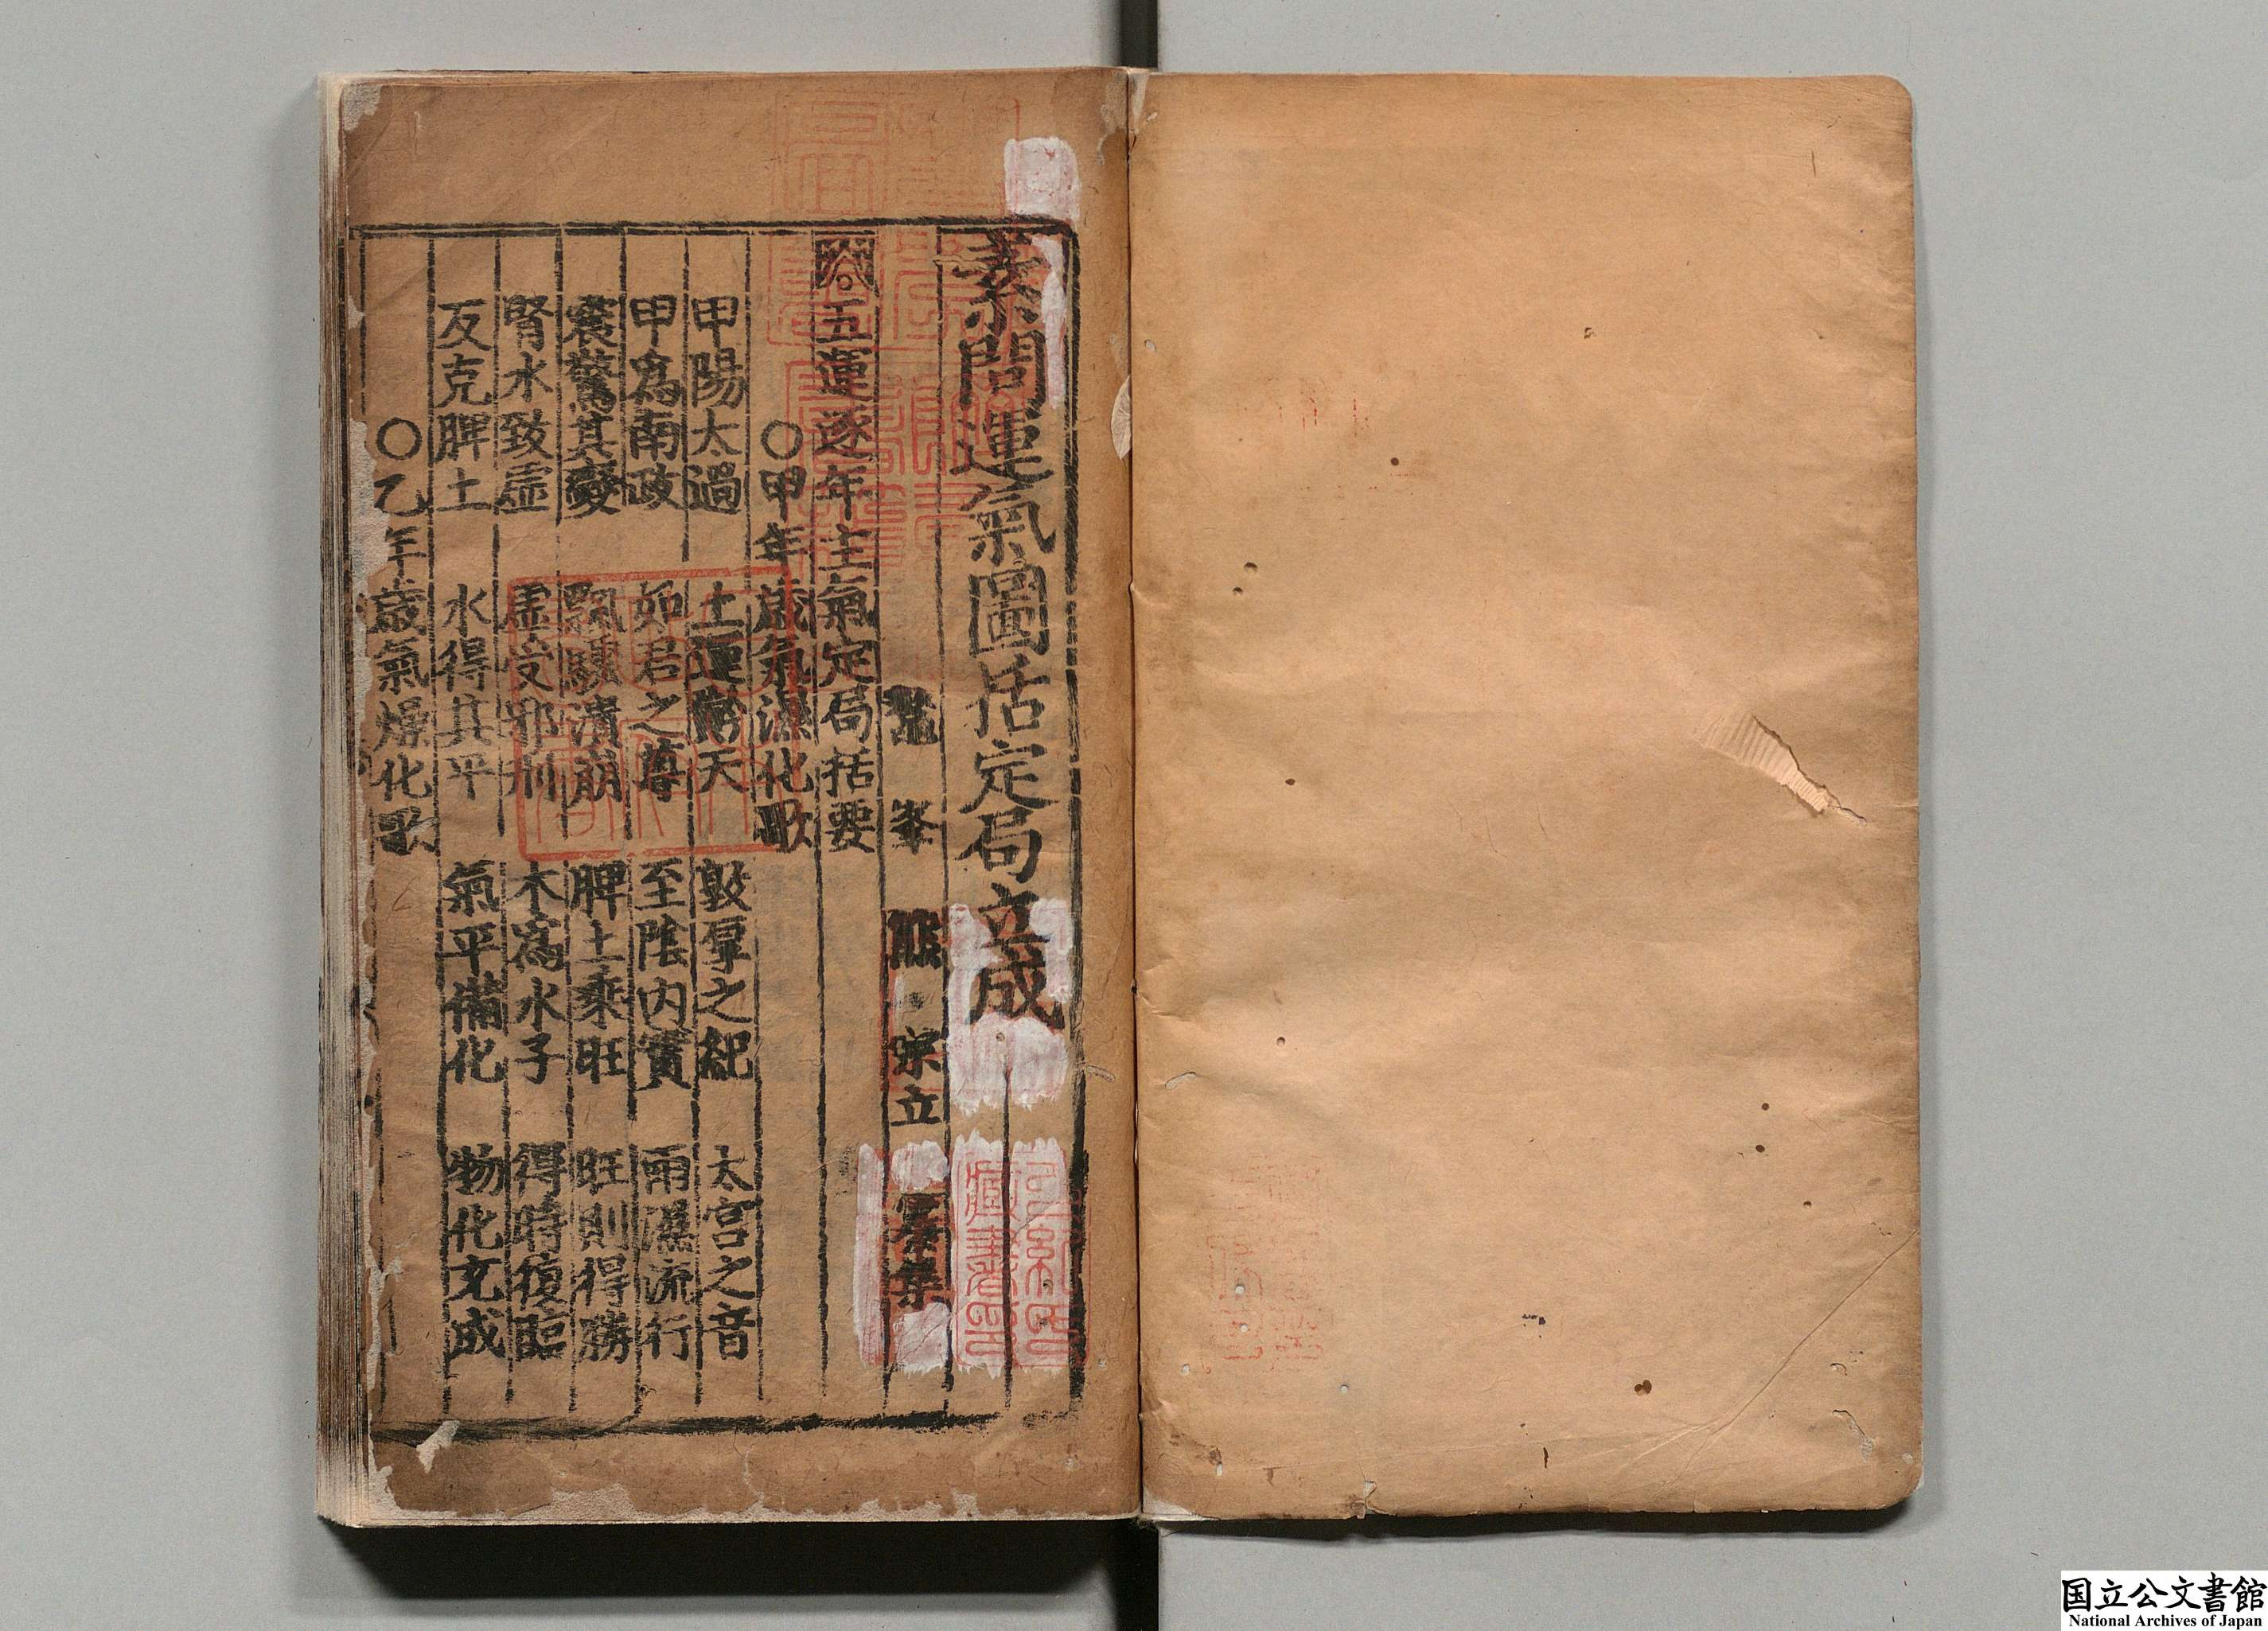 素問運氣圖括定局立成
鼇峯 熊宗立 纂集
五運逐年主氣定局括要
〇甲年歲氣濕化歌
甲陽太過 土運齊天 敦阜之紀 太宮之音
甲爲南政 如君之尊 至陰内實 雨濕流行
震驚其變 飄驟潰崩 脾土乘旺 旺則得勝
腎水致虛 虛受邪刑 木爲水子 得時復臨
反克脾土 水得其平 氣平備化 物化充成
〇乙年歲氣燥化歌
国立公文書館
National Archives of Japan